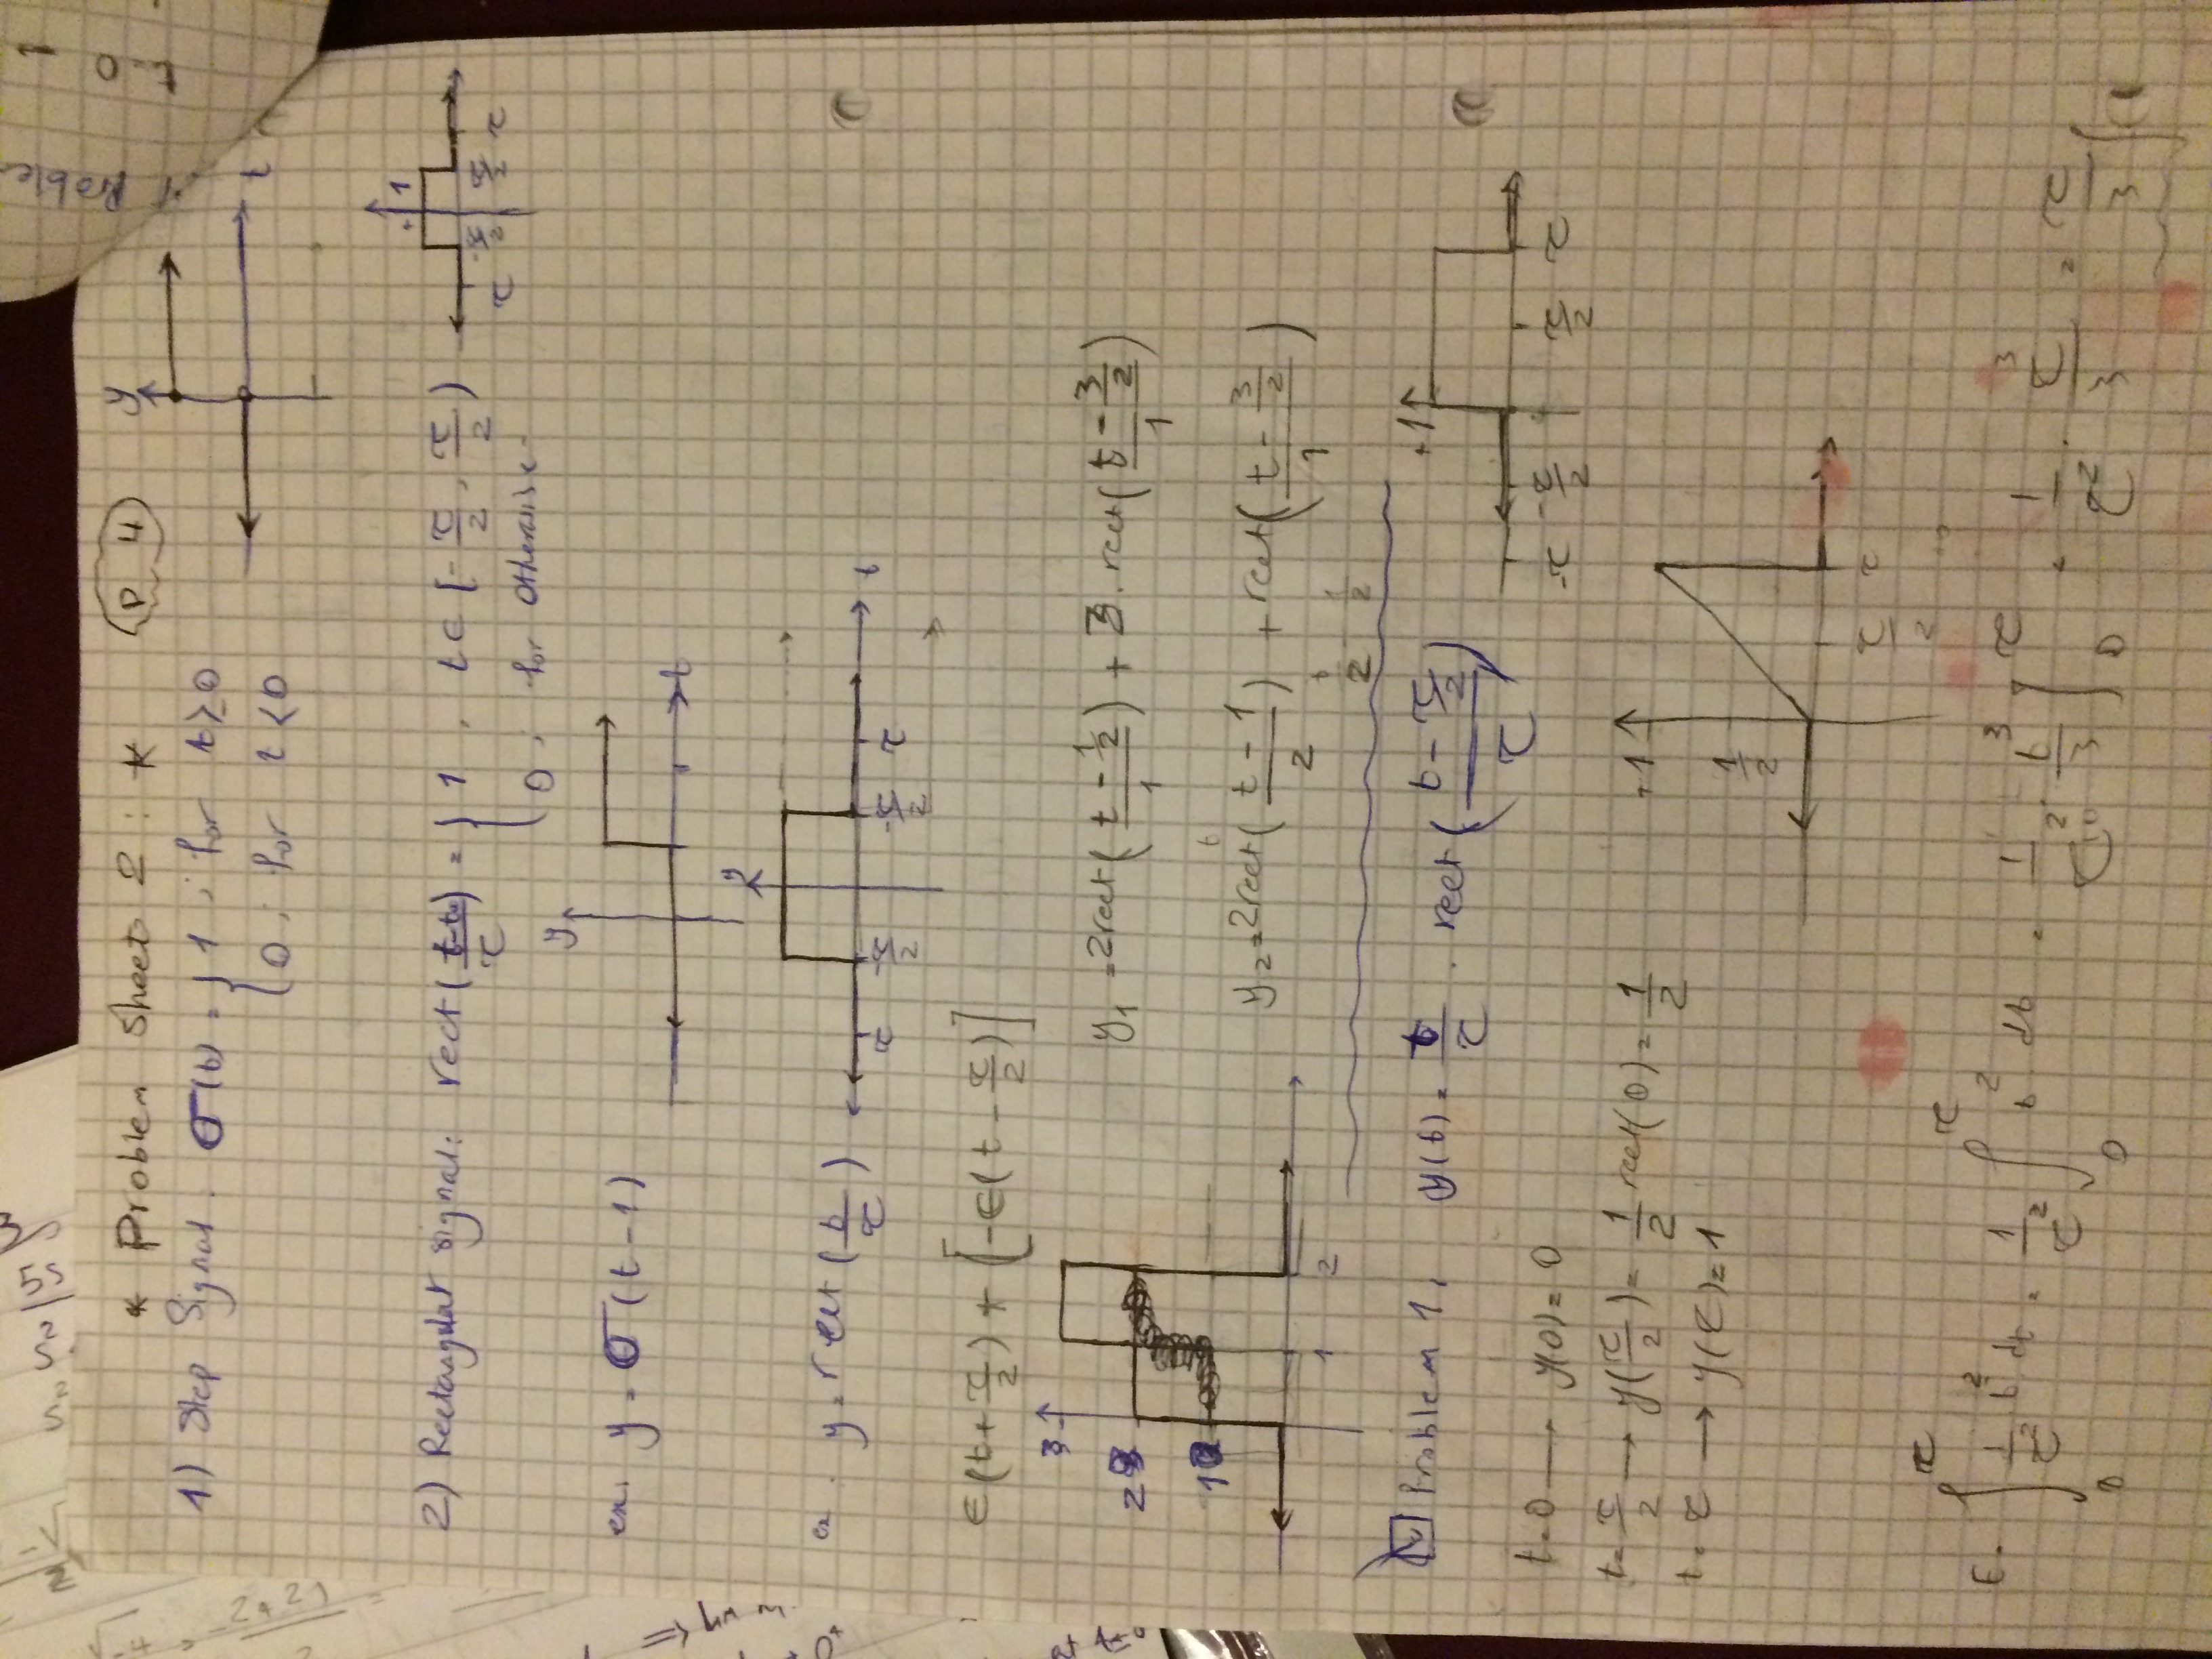 * Problem Sheet 2 : *
P 4
y
1) Step Signal. σ(t) = { 1 ; for t ≥ 0
0 ; for t < 0
t
2) Rectangular signal: rect(t-t₀/τ) = { 1 , t ∈ [-τ/2, τ/2)
0 , for otherwise
1
τ -τ/2 τ/2 τ
ex. y = σ(t-1)
y
t
ex. y = rect(t/τ)
y
τ -τ/2 -τ/2 τ t
ϵ(t+τ/2) + [-ϵ(t-τ/2)]
3
2
1
1 2
y₁ = 2rect(t-1/2/1) + 3.rect(t-3/2/1)
y₂ = 2rect(t-1/2) + rect(t-3/2/1)
Problem 1, y(t) = t/τ . rect(t-τ/2/τ)
+1
-τ -τ/2 τ/2 τ
t=0 → y(0) = 0
t=τ/2 → y(τ/2) = 1/2 rect(0) = 1/2
t=τ → y(τ) = 1
+1
1/2
τ/2 τ
E = ∫₀^τ 1/τ² t² dt = 1/τ² ∫₀^τ t² dt = 1/τ² . t³/3 ]₀^τ = 1/τ² . τ³/3 = τ/3